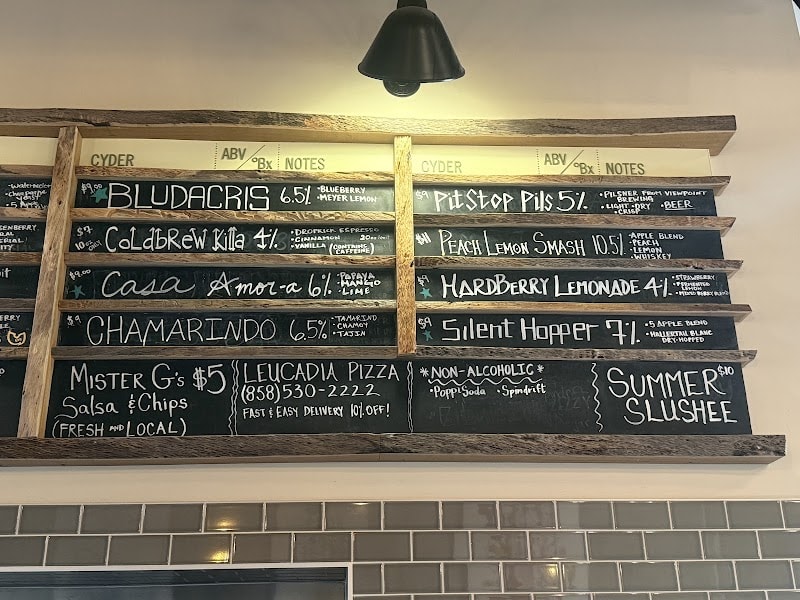 CYDER ABV/°Bx NOTES
$9.00 BLUDACRIS 6.5% •BLUEBERRY
•MEYER LEMON
$7
COLDBREW Killa 4% •DROPKICK ESPRESSO
•CINNAMON
•VANILLA (CONTAINS CAFFEINE)
$9.00 Casa Amor-a 6% •PAPAYA
•MANGO
•LIME
$9 CHAMARINDO 6.5% •TAMARIND
•CHAMOY
•TAJIN
CYDER ABV/°Bx NOTES
$9 PitStop Pils 5% •PILSNER FROM VIEWPOINT
BREWING
•LIGHT •DRY •BEER
•CRISP
$11 PEACH LEMON SMASH 10.5% •APPLE BLEND
•PEACH
•LEMON
•WHISKEY
$9 HARDBERRY LEMONADE 4% •STRAWBERRY
•FERMENTED
LEMON
•MIXED BERRY BLEND
$9 Silent Hopper 7% •5 APPLE BLEND
•HALLERTAU BLANC
DRY-HOPPED
MISTER G's $5
Salsa & Chips
(FRESH AND LOCAL)
LEUCADIA PIZZA
(858)530-2222
FAST & EASY DELIVERY 10% OFF!
*NON-ALCOHOLIC*
•Poppi Soda •Spindrift
SUMMER $10
SLUSHEE